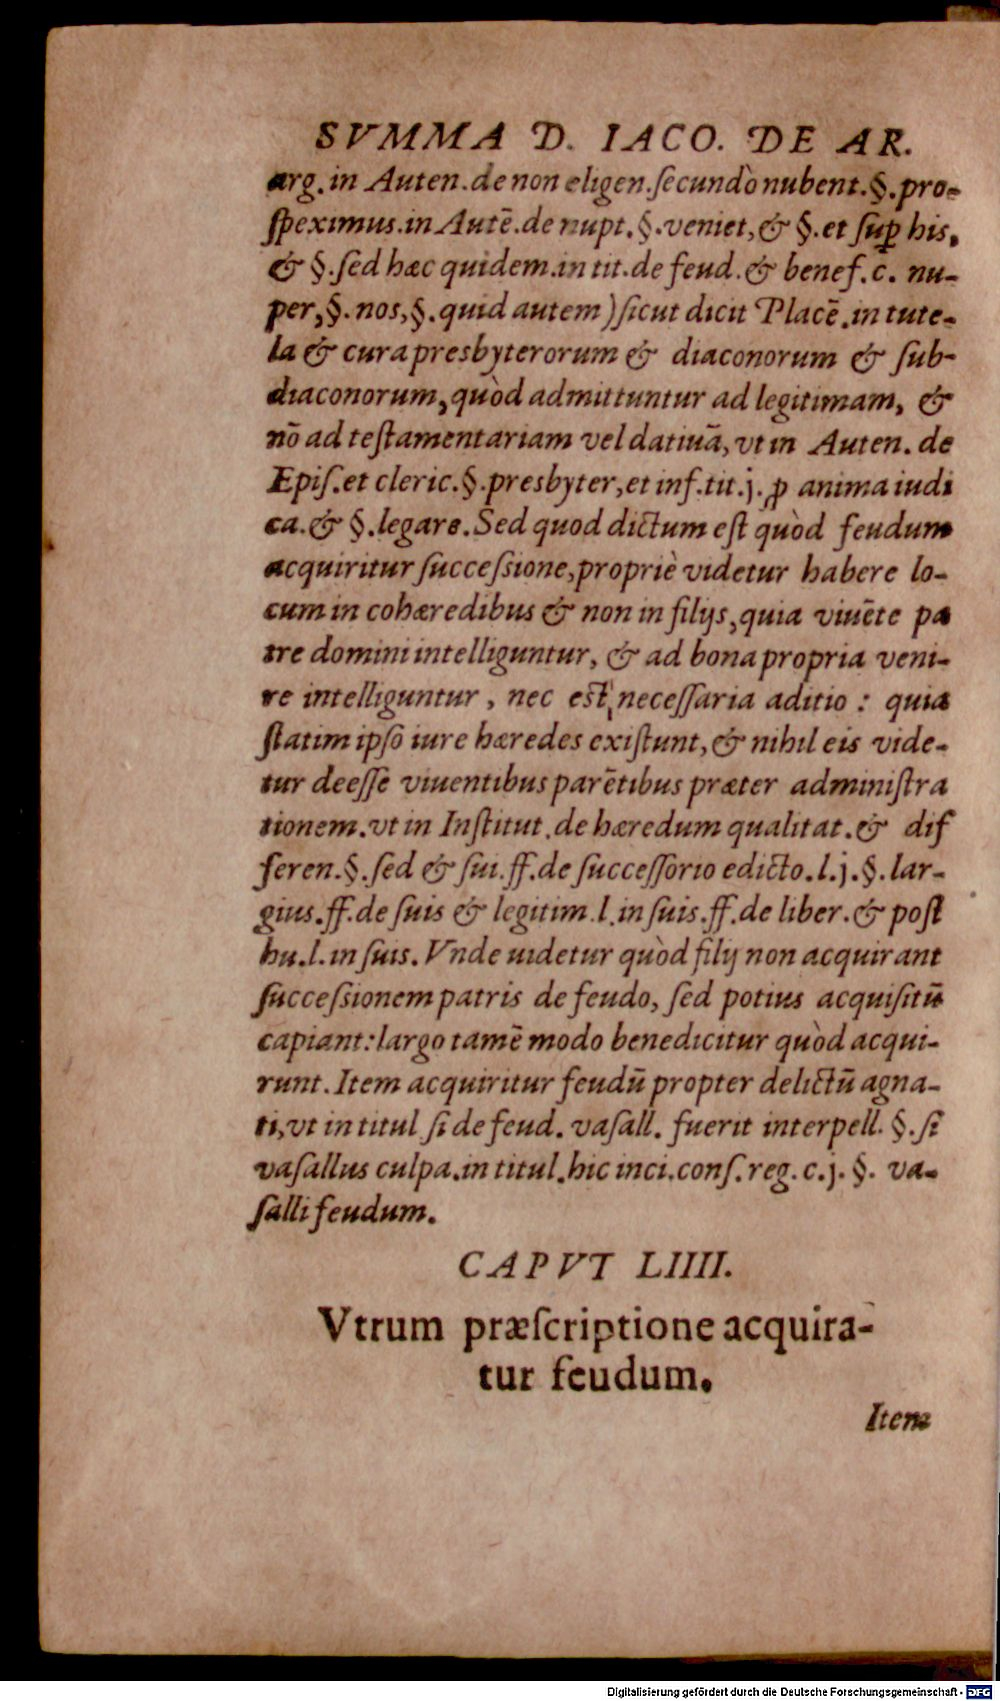 SVMMA D. IACO. DE AR.
arg. in Auten. de non eligen. ſecundò nubent. §. pro-
ſpeximus. in Autē. de nupt. §. veniet, & §. et ſuꝑ his,
& §. ſed hæc quidem. in tit. de feud. & benef. c. nu-
per, §. nos, §. quid autem) ſicut dicit Placē. in tute-
la & cura presbyterorum & diaconorum & ſub-
diaconorum, quòd admittuntur ad legitimam, &
nō ad teſtamentariam vel datiuā, vt in Auten. de
Epiſ. et cleric. §. presbyter, et inf. tit. j. ꝓ anima iudi
ca. & §. legare. Sed quod dictum eſt quòd feudum
acquiritur ſucceſsione, propriè videtur habere lo-
cum in cohæredibus & non in filijs, quia viuēte pa
tre domini intelliguntur, & ad bona propria veni-
re intelliguntur, nec eſt neceſſaria aditio: quia
ſtatim ipſo iure hæredes exiſtunt, & nihil eis vide-
tur deeſſe viuentibus parētibus præter adminiſtra
tionem. vt in Inſtitut. de hæredum qualitat. & dif
feren. §. ſed & ſui. ff. de ſucceſſorio edicto. l. j. §. lar-
gius. ff. de ſuis & legitim. l. in ſuis. ff. de liber. & poſt
hu. l. in ſuis. Vnde uidetur quòd filij non acquirant
ſucceſsionem patris de feudo, ſed potius acquiſitū
capiant: largo tamē modo benedicitur quòd acqui-
runt. Item acquiritur feudū propter delictū agna-
ti, vt in titul ſi de feud. vaſall. fuerit interpell. §. ſi
vaſallus culpa. in titul. hic inci. conſ. reg. c. j. §. va-
ſalli feudum.
CAPVT LIIII.
Vtrum præſcriptione acquira-
tur feudum.
Item
Digitalisierung gefördert durch die Deutsche Forschungsgemeinschaft - DFG